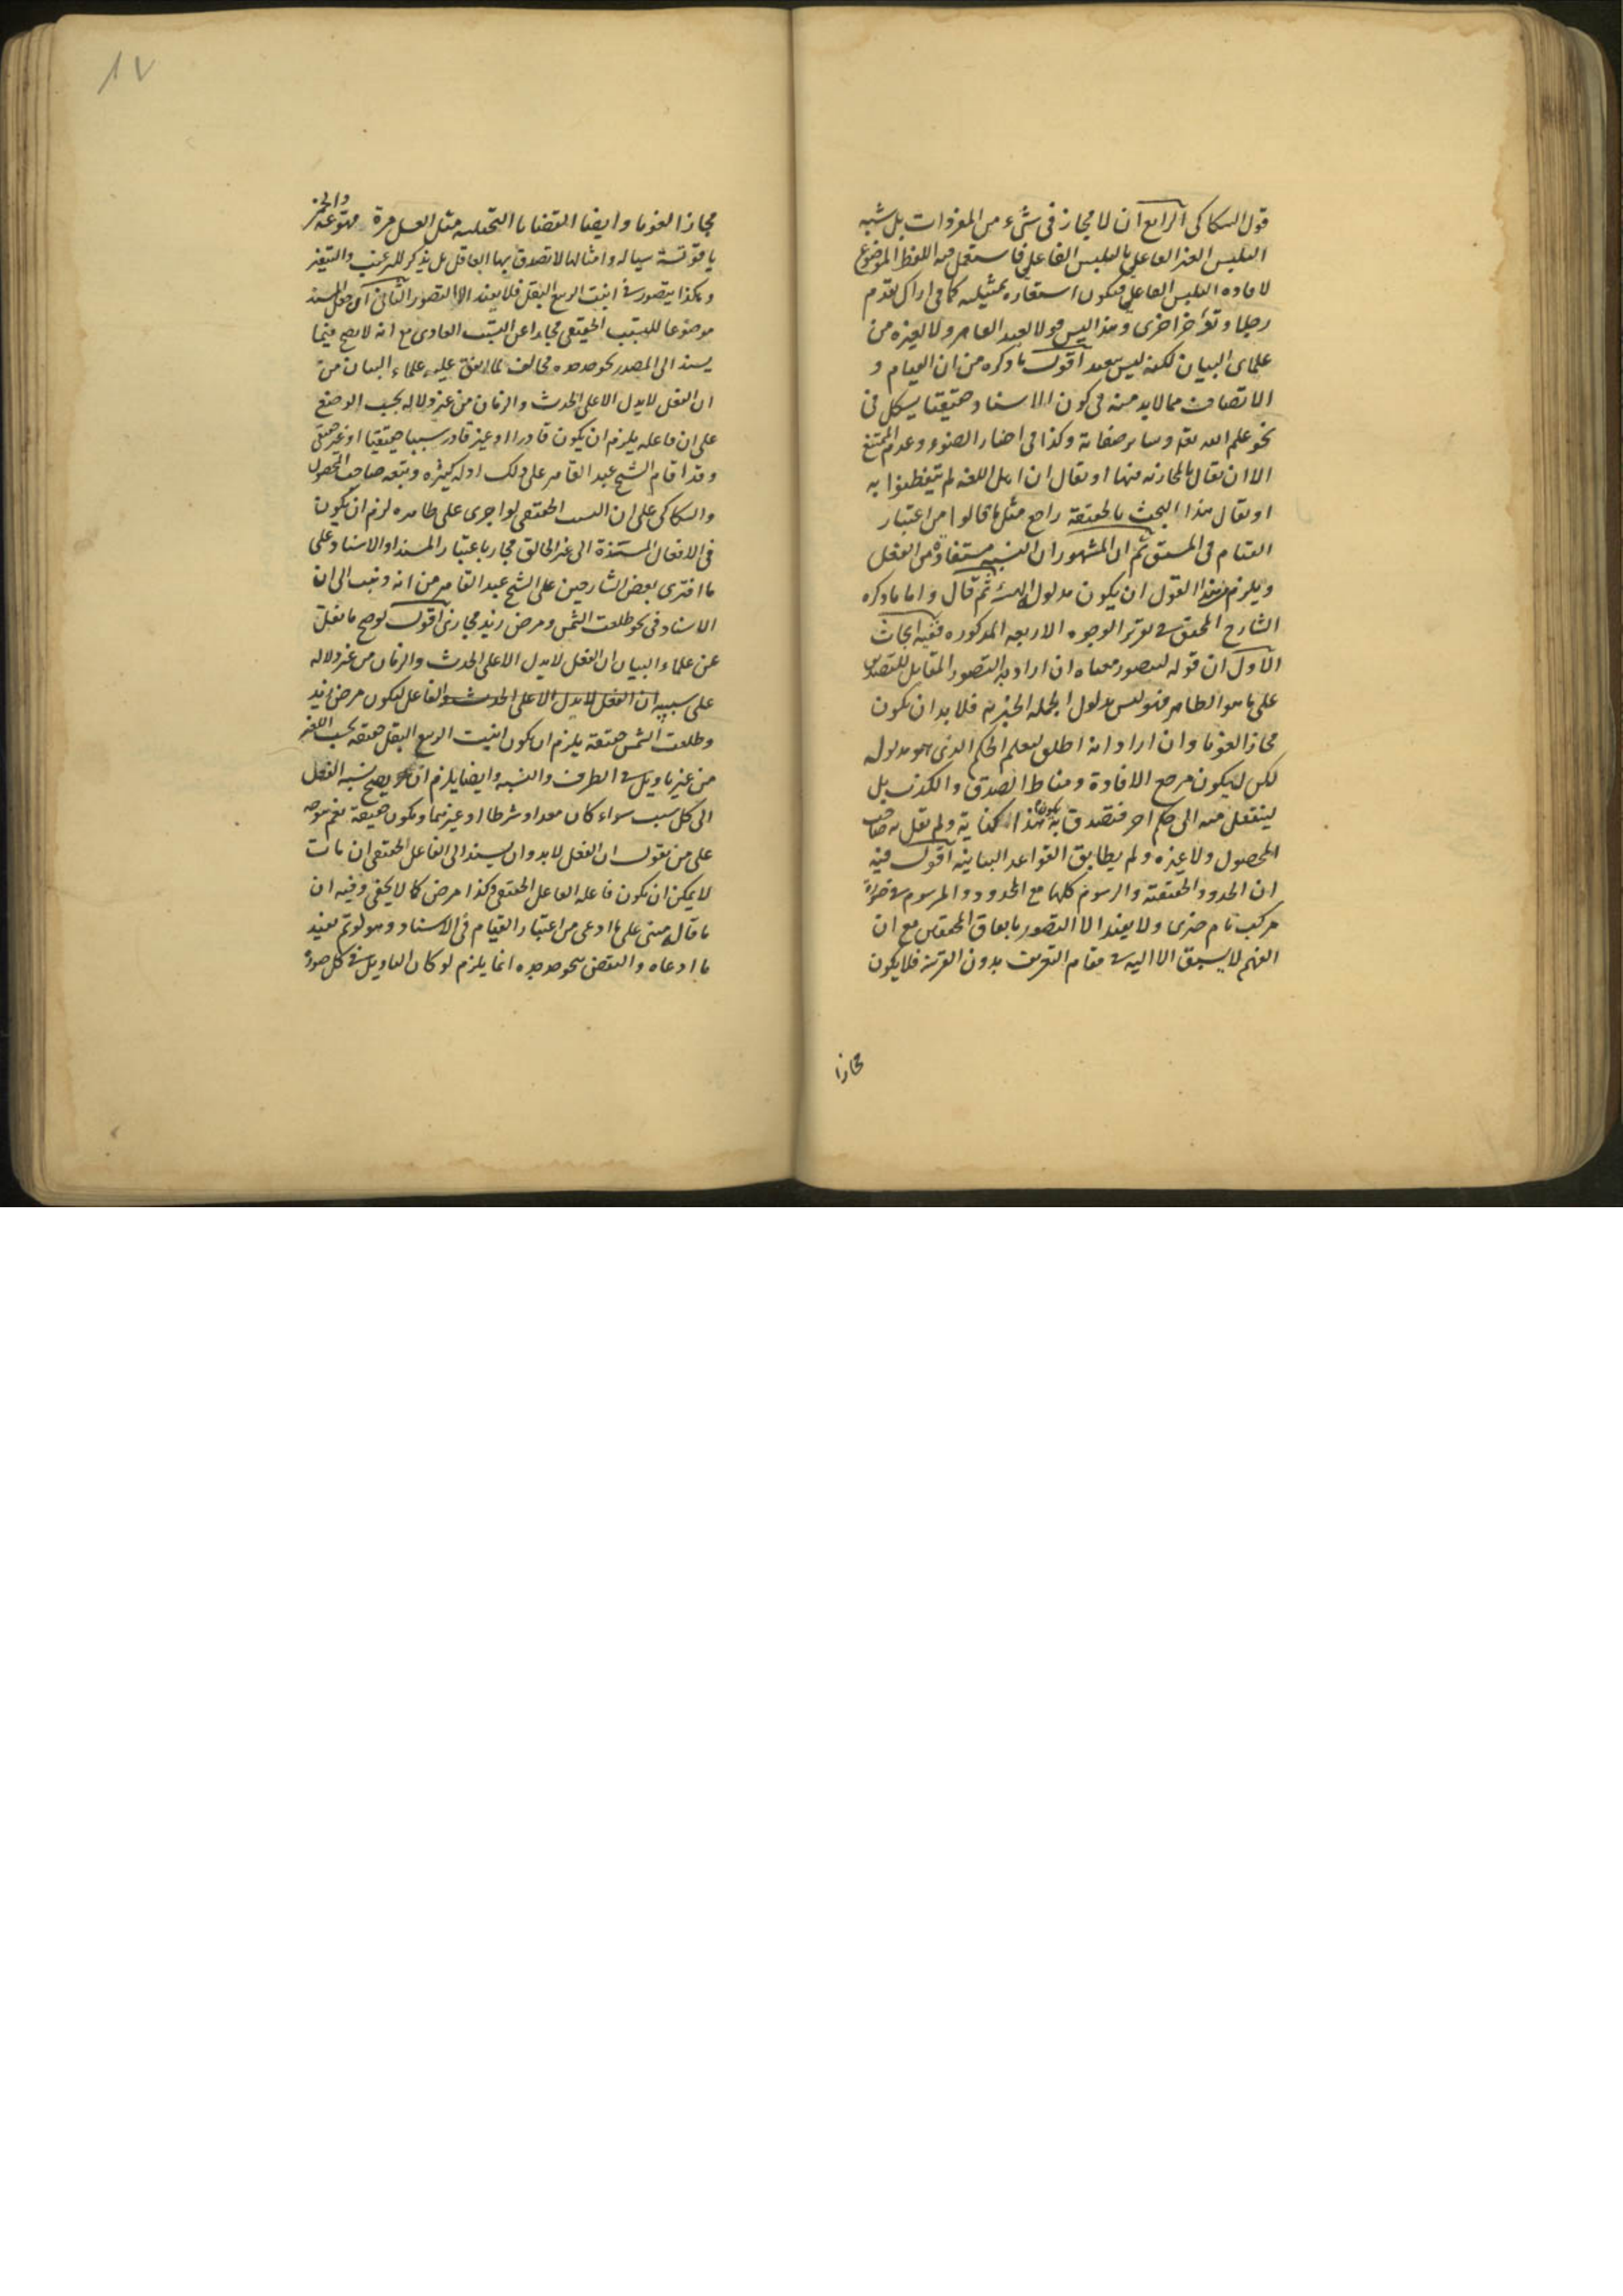 قول السكاكى الرابع ان لا مجاز فى شىء من المفردات بل شبه
التلبس الغير الفاعلى بالتلبس الفاعلى فاستعمل فيه اللفظ الموضوع
لافاده التلبس الفاعلى فيكون استعارة تمثيلية كما فى اراك تقدم
رجلا وتؤخر اخرى وهذا ليس قولا لعبد القاهر ولا لغيره من
علماى البيان لكنه ليس ببعيد اقول ما ذكره من ان القيام و
الاتصاف مما لابد منه فى كون الاسناد حقيقيا يشكل فى
نحو علم الله تعالى وسائر صفاته وكذا فى احضار الضوء وعدم الممتنع
الا ان يقال بالمجازية فيها او يقال ان اهل اللغه لم يتفطنوا به
او يقال هذا البحث بالحقيقة راجع مثل ما قالوا من اعتبار
القيام فى المشتق ثم ان المشهور ان النسبه مستفادة من الفعل
ويلزم هذا القول ان يكون مدلول الهيئة ثم قال واما ما ذكره
الشارح المحقق فى تقرير الوجوه الاربعه المذكوره ففيه ابحاث
الاول ان قوله ليتصور معناه ان اراد به التصور المقابل للتصديق
على ما هو الظاهر فهو ليس مدلول الجملة الخبرية فلا بد ان يكون
مجازا لغويا وان اراد انه اطلق ليعلم الحكم الذى هو مدلوله
لكن ليكون مرجع الافادة ومناط الصدق والكذب بل
لينتقل منه الى حكم اخر فتصدق به يكون هذا كناية ولم يقل به صاحب
المحصول ولا غيره ولم يطابق القواعد البيانية اقول فيه
ان الحدود الحقيقية والرسوم كلها مع المحدود والمرسوم فى صورة
مركب تام خبرى ولا يفيد الا التصور باتفاق المحققين مع ان
الفهم لا يسبق الا اليه فى مقام التعريف بدون القرينة فلا يكون
مجازا
١٧
مجازا لغويا وايضا القضايا التخيلية مثل العسل مرة مهوعة والخمر
ياقوتة سيالة وامثالها لا تصدق بها العاقل بل يذكر للترغيب والتنفير
وهكذا يتصور فى انبت الربيع البقل فلا يفيد الا التصور الثانى ان جعل المسند
موضوعا للتسبب الحقيقى مجازا عن التسبب العادى مع انه لا يصح فيما
يسند الى المصدر نحو جد جده مخالف لما اتفق عليه علماء البيان من
ان الفعل لا يدل الا على الحدث والزمان من غير دلاله بحسب الوضع
على ان فاعله يلزم ان يكون قادرا او غير قادر سببا حقيقيا او غير حقيقى
وقد اقام الشيخ عبد القاهر على ذلك ادلة كثيره وتبعه صاحب المحصول
والسكاكى على ان التسبب الحقيقى لو اجرى على ظاهره لزم ان يكون
فى الافعال المستندة الى غير الخالق مجاز باعتبار المسند او الاسناد على
ما افترى بعض الشارحين على الشيخ عبد القاهر من انه ذهب الى ان
الاسناد فى نحو طلعت الشمس ومرض زيد مجازى اقول لو صح ما نقل
عن علماء البيان ان الفعل لا يدل الا على الحدث والزمان من غير دلاله
على سببيه ان الفعل لا يدل الا على الحدث والفاعل ليكون مرض زيد
وطلعت الشمس حقيقة يلزم ان يكون انبت الربيع البقل حقيقه بحسب اللغه
من غير تاويل فى الطرف والنسبه وايضا يلزم ان يصح نسبه الفعل
الى كل سبب سواء كان معدا او شرطا او غيرهما ويكون حقيقة نعم يتوجه
على من يقول ان الفعل لا بد وان يسند الى الفاعل الحقيقى ان مات
لا يمكن ان يكون فاعله الفاعل الحقيقى وكذا مرض كما لا يخفى وفيه ان
ما قاله مبنى على ما ادعى من اعتبار القيام فى الاسناد وهو لو تم يفيد
ما ادعاه والنقض بنحو جد جده انما يلزم لو كان التاويل فى كل صورة